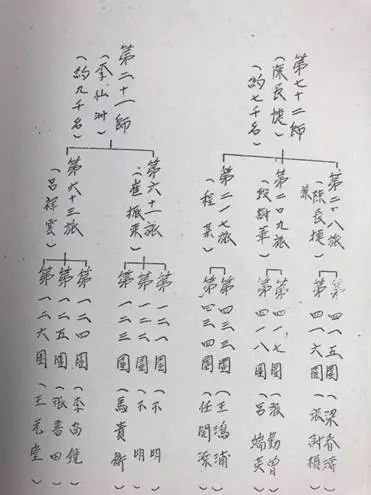 第七十二師
（陳長捷）
（約七千名）
第二〇八旅
（陳長捷兼）
第四一五團（梁春溥）
第四一六團（張樹楨）
第二〇九旅
（段樹華）
第四一七團（張勤曾）
第四一八團（呂瑞英）
第二一七旅
（程某）
第四三三團（王鴻浦）
第四三四團（任閏溁）
第二十一師
（李仙洲）
（約九千名）
第六十一旅
（崔振東）
第一二一團（不明）
第一二二團（不明）
第一二三團（馬貴衡）
第六十三旅
（呂祥雲）
第一二四團（李尚鏡）
第一二五團（張書田）
第一二六團（王元堂）